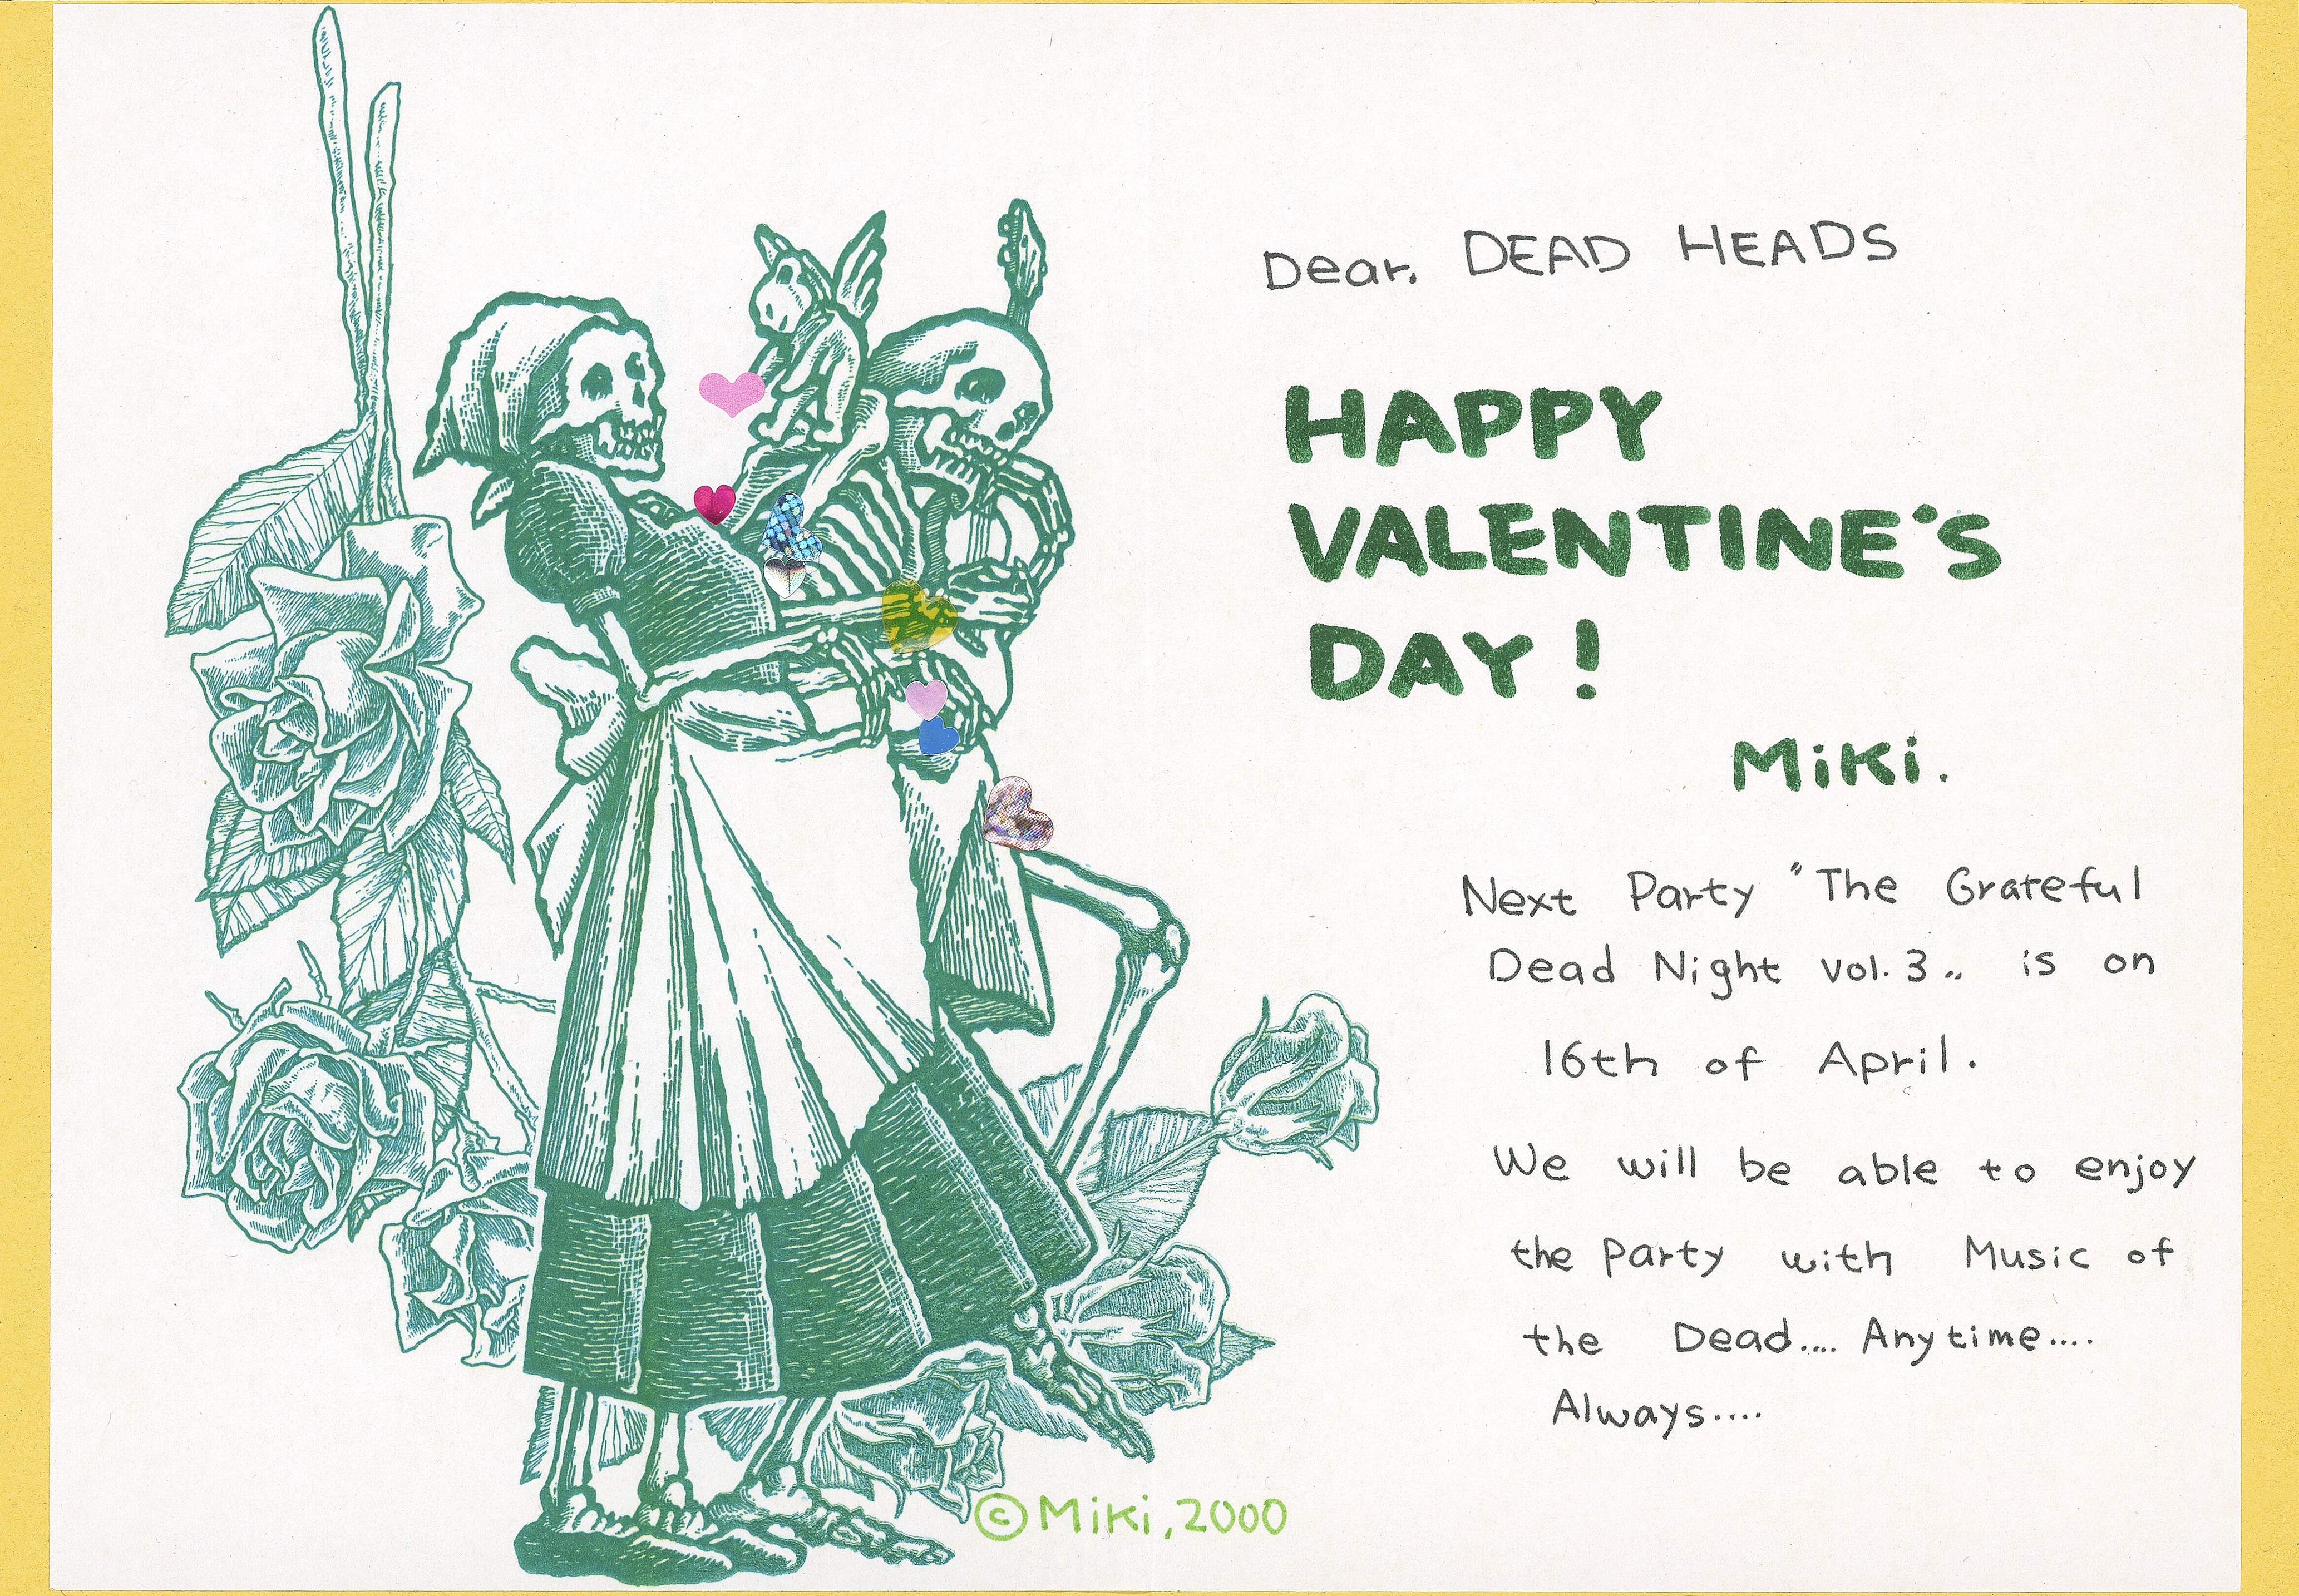 Dear, DEAD HEADS
HAPPY
VALENTINE'S
DAY!
Miki.
Next Party "The Grateful
Dead Night vol.3" is on
16th of April.
We will be able to enjoy
the party with Music of
the Dead.... Anytime....
Always....
©Miki, 2000